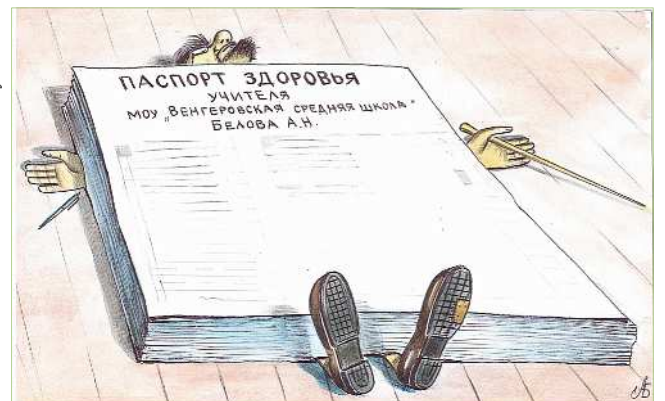 ПАСПОРТ ЗДОРОВЬЯ
УЧИТЕЛЯ
МОУ „ВЕНГЕРОВСКАЯ СРЕДНЯЯ ШКОЛА"
БЕЛОВА А.Н.